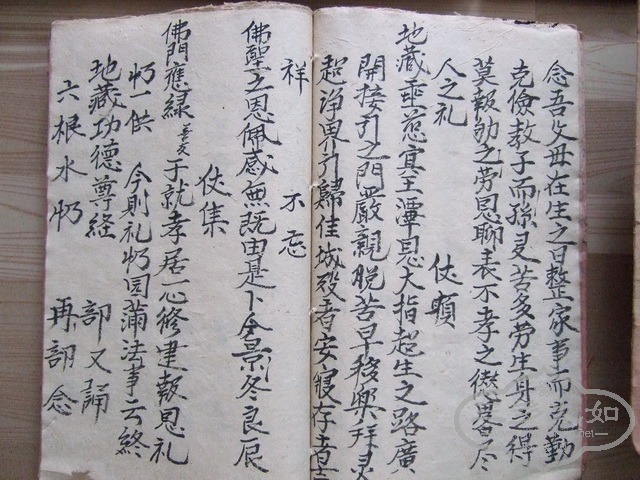 念吾父母在生之日整家事而克勤
克儉教子而孫受苦多劳生身之得
莫報劬之劳恩聊表不孝之愆畧尽
人之礼 仗願
地藏垂慈冥主潭恩大指超生之路廣
開接引之門嚴親脱苦早稅樂拜灵
超诤界引歸佳城殁者安寢存者
祥 不忘
佛聖之恩佩感無既由是卜今景冬良辰
仗集
佛門應緑善友于就孝居一心修建報恩礼
忉一供 今則礼忉园蒲法事云終
地藏功德尊経 部又誦
六根水忉 再詡念
如
net